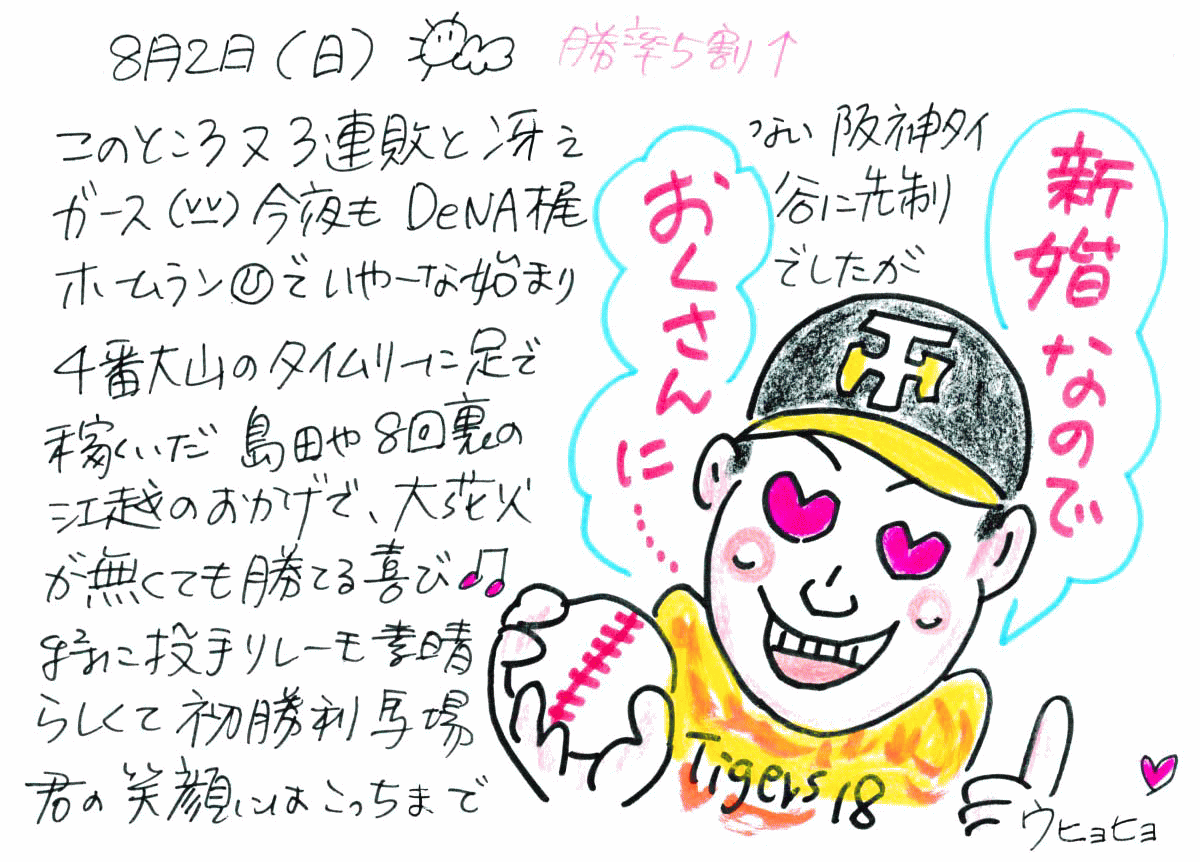 8月2日(日)
勝率5割↑
このところ又3連敗と冴え
ない阪神タイ
ガース(vv)今夜も DeNA梶
谷に先制
ホームランでいやーな始まり
でしたが
4番大山のタイムリーに足で
稼いだ 島田や8回裏の
江越のおかげで、大花火
が無くても勝てる喜び♫
それに投手リレーも素晴
らしくて初勝利馬場
君の笑顔にはこっちまで
新婚なので
おくさんに……
Tigers 18
ウヒョヒョ